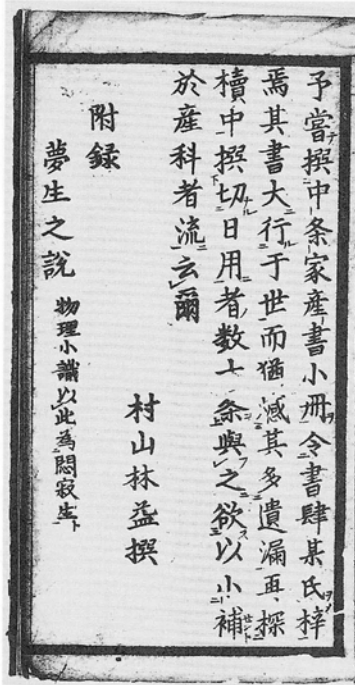 予嘗撰中条家産書小冊令書肆某氏梓
焉其書大行于世而猶憾其多遺漏再探
櫝中撰切日用者数十条與之欲以小補
於産科者流云爾
村山林益撰
附録
夢生之說 物理小識以此為悶寂生